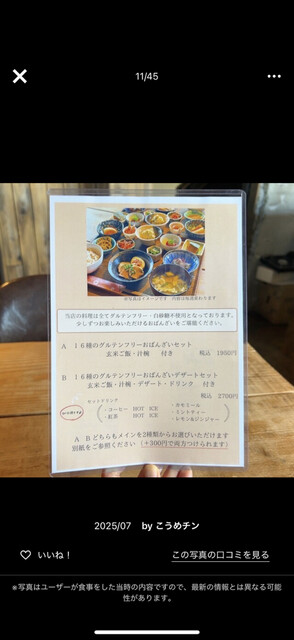 11/45
※写真はイメージです 内容は毎週変わります
当店の料理は全てグルテンフリー・白砂糖不使用となっております。
少しずつお楽しみいただけるおばんざいをご堪能ください。
A １６種のグルテンフリーおばんざいセット
玄米ご飯・汁椀 付き 税込 1980円
B １６種のグルテンフリーおばんざいデザートセット
玄米ご飯・汁椀・デザート・ドリンク 付き
税込 2700円
セットドリンク
・コーヒー HOT ICE ・カモミール
・紅茶 HOT ICE ・ミントティー
・レモン&ジンジャー
A Bどちらもメインを2種類からお選びいただけます
別紙をご参照ください （＋300円で両方つけられます）
2025/07 by こうめチン
いいね！
この写真の口コミを見る
※写真はユーザーが食事をした当時の内容ですので、最新の情報とは異なる可
能性があります。